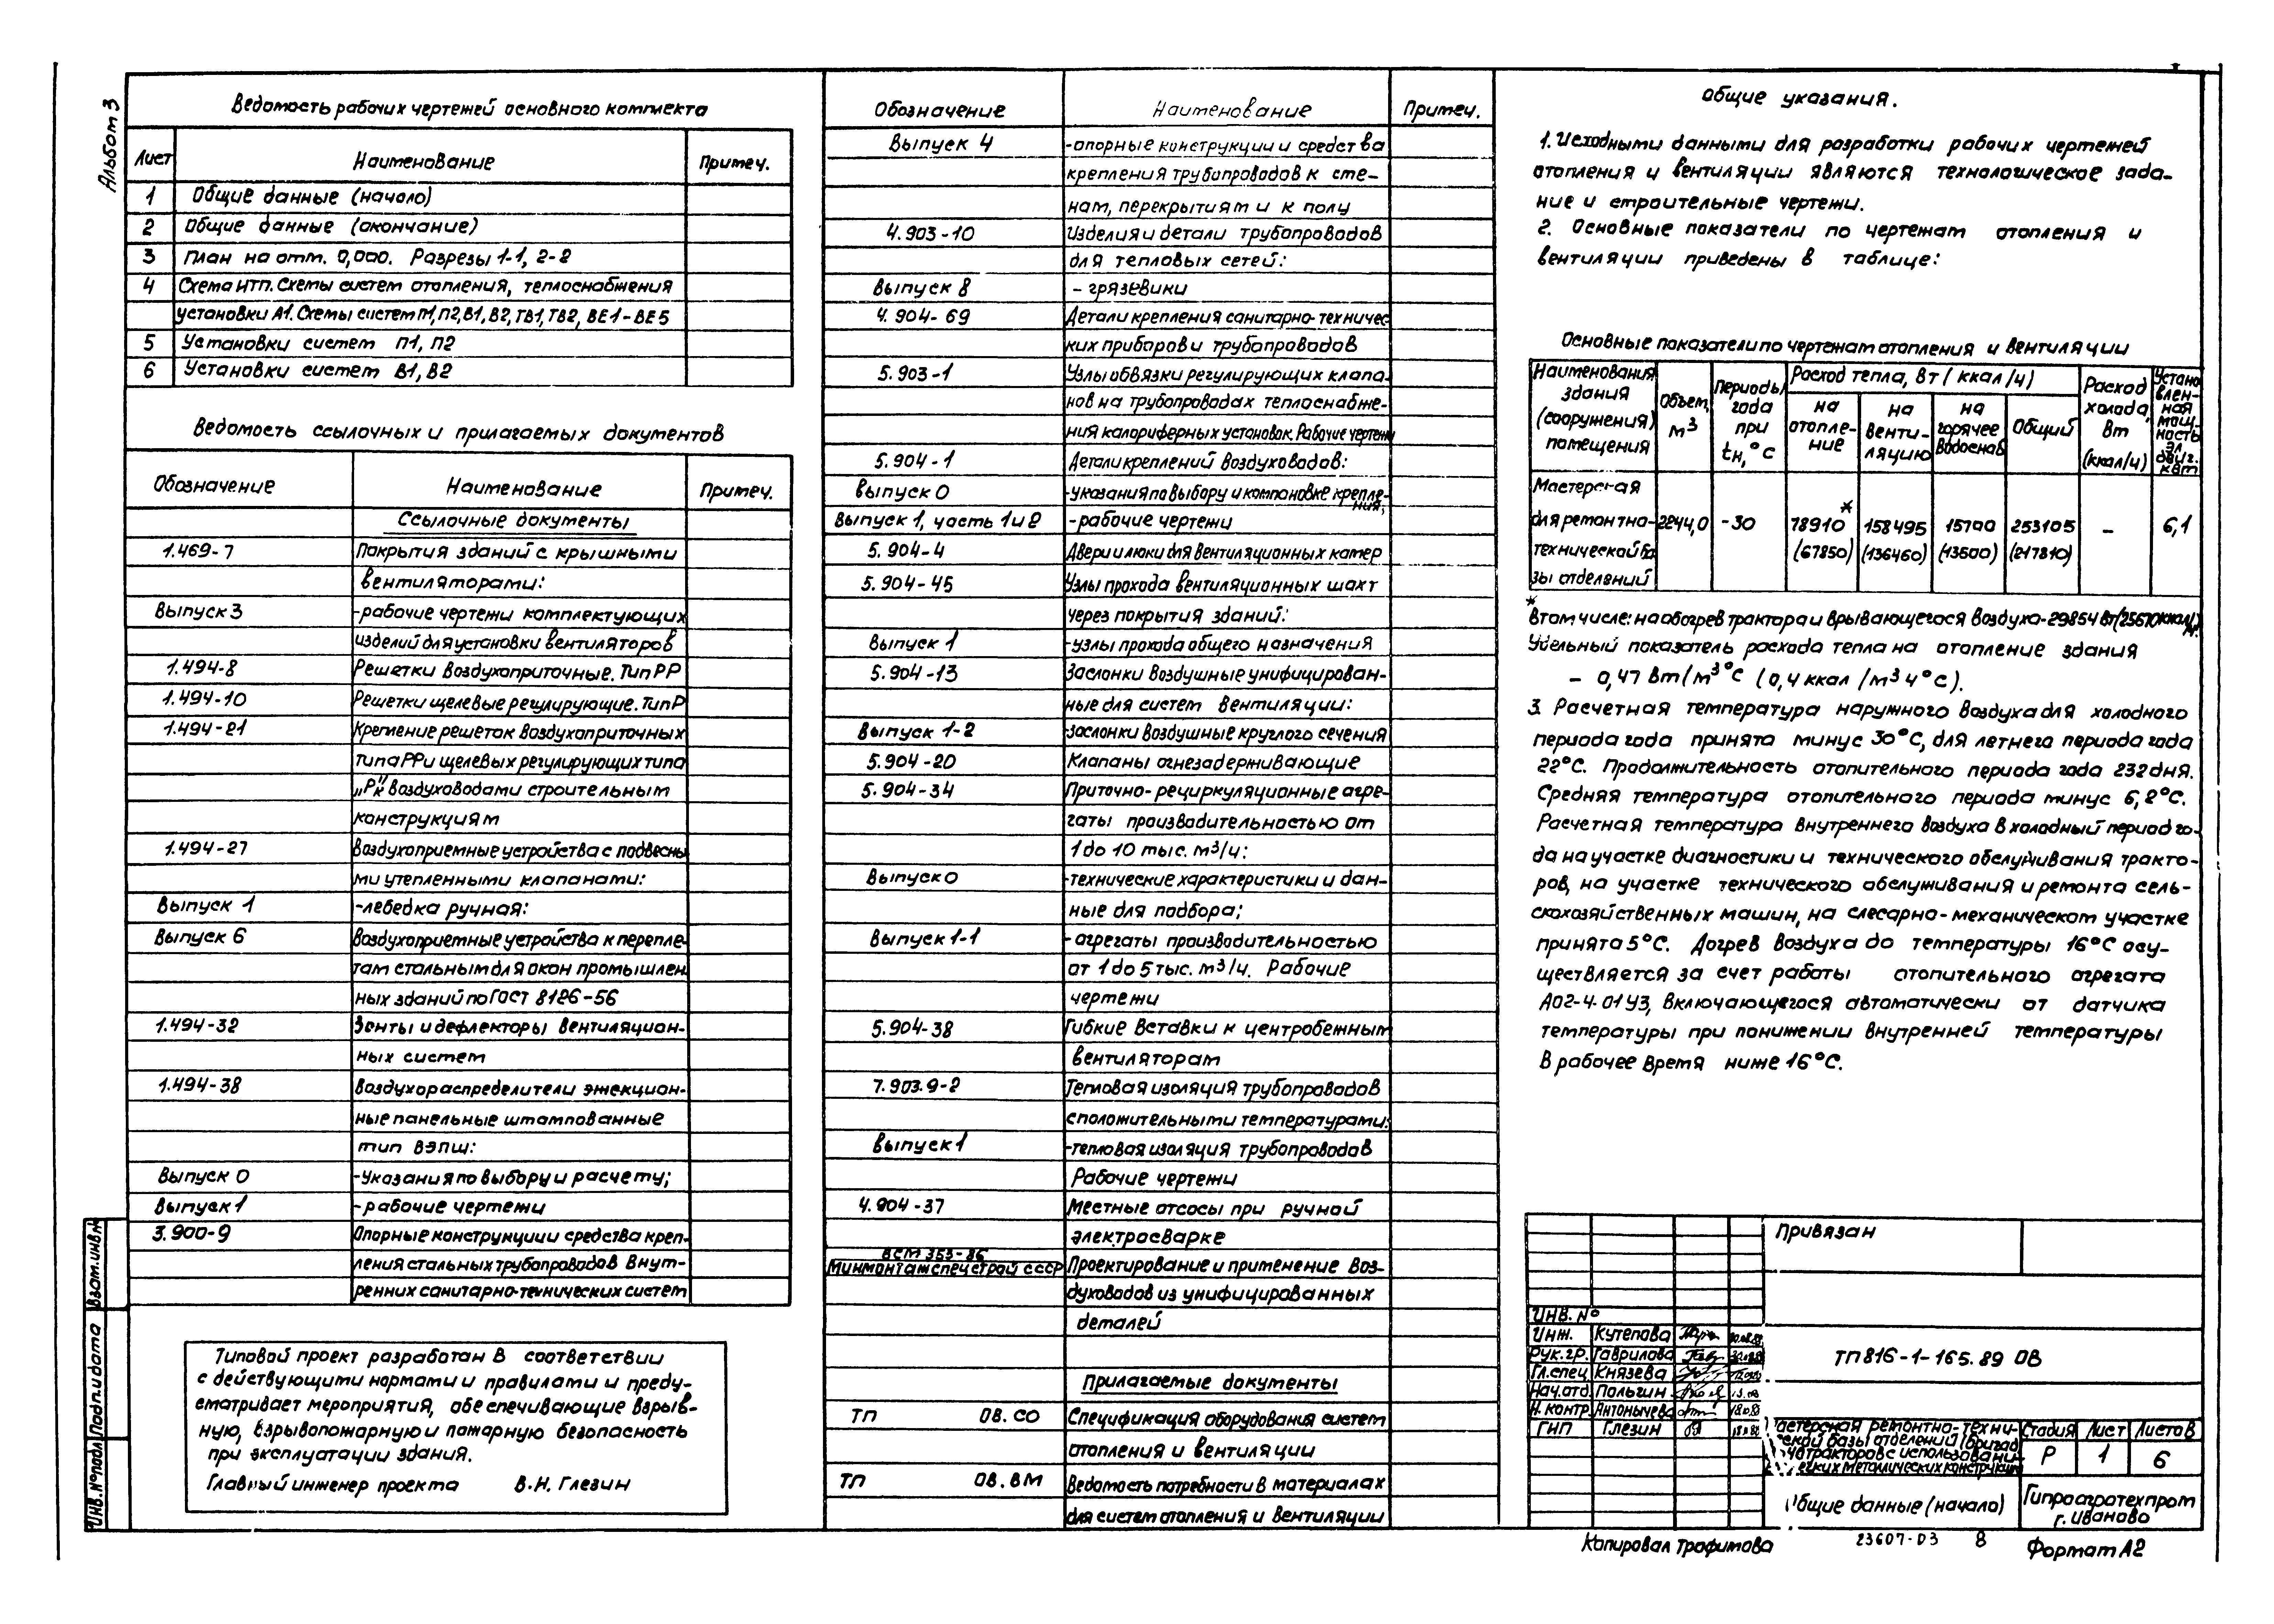 Альбом 3
Ведомость рабочих чертежей основного комплекта
Лист Наименование Примеч.
1 Общие данные (начало)
2 Общие данные (окончание)
3 План на отм. 0,000. Разрезы 1-1, 2-2
4 Схема ИТП. Схемы систем отопления, теплоснабжения
установки А1. Схемы систем П1, П2, В1, В2, ТВ1, ТВ2, ВЕ1-ВЕ5
5 Установки систем П1, П2
6 Установки систем В1, В2
Ведомость ссылочных и прилагаемых документов
Обозначение Наименование Примеч.
Ссылочные документы
1.469-7 Покрытия зданий с крышными
вентиляторами:
Выпуск 3 -рабочие чертежи комплектующих
изделий для установки вентиляторов
1.494-8 Решетки воздухоприточные. Тип РР
1.494-10 Решетки щелевые регулирующие. Тип Р
1.494-21 Крепление решеток воздухоприточных
типа РР и щелевых регулирующих типа
„Р" к воздуховодам строительным
конструкциям
1.494-27 Воздухоприемные устройства с подвесны
ми утепленными клапанами:
Выпуск 1 -лебедка ручная:
Выпуск 6 Воздухоприемные устройства к перепле-
там стальным для окон промышлен
ных зданий по ГОСТ 8126-56
1.494-32 Зонты и дефлекторы вентиляцион-
ных систем
1.494-38 Воздухораспределители эжекцион-
ные панельные штампованные
тип ВЭПш:
Выпуск 0 -Указания по выбору и расчету;
Выпуск 1 -рабочие чертежи
3.900-9 Опорные конструкции и средства креп-
ления стальных трубопроводов внут-
ренних санитарно-технических систем
Типовой проект разработан в соответствии
с действующими нормами и правилами и преду-
сматривает мероприятия, обеспечивающие взрыв-
ную, взрывопожарную и пожарную безопасность
при эксплуатации здания.
Главный инженер проекта В.Н. Глезин
Взам.инв.№
Подп.и дата
Инв.№ подл
Обозначение Наименование Примеч.
Выпуск 4 -опорные конструкции и средства
крепления трубопроводов к сте-
нам, перекрытиям и к полу
4.903-10 Изделия и детали трубопроводов
для тепловых сетей:
Выпуск 8 - грязевики
4.904-69 Детали крепления санитарно-техничес
ких приборов и трубопроводов
5.903-1 Узлы обвязки регулирующих клапа-
нов на трубопроводах теплоснабже-
ния калориферных установок. Рабочие чертежи
5.904-1 Детали креплений воздуховодов:
Выпуск 0 -указания по выбору и компоновке крепле-
ния;
Выпуск 1, часть 1 и 2 -рабочие чертежи
5.904-4 Двери и люки для вентиляционных камер
5.904-45 Узлы прохода вентиляционных шахт
через покрытия зданий:
Выпуск 1 -узлы прохода общего назначения
5.904-13 Заслонки воздушные унифицирован-
ные для систем вентиляции:
Выпуск 1-2 -заслонки воздушные круглого сечения
5.904-20 Клапаны огнезадерживающие
5.904-34 Приточно-рециркуляционные агре-
гаты производительностью от
1 до 10 тыс. м³/ч:
Выпуск 0 -технические характеристики и дан-
ные для подбора;
Выпуск 1-1 -агрегаты производительностью
от 1 до 5 тыс. м³/ч. Рабочие
чертежи
5.904-38 Гибкие вставки к центробежным
вентиляторам
7.903.9-2 Тепловая изоляция трубопроводов
с положительными температурами:
Выпуск 1 -тепловая изоляция трубопроводов
Рабочие чертежи
4.904-37 Местные отсосы при ручной
электросварке
ВСМ 353-86
Минмонтажспецстрой СССР Проектирование и применение воз-
духоводов из унифицированных
деталей
Прилагаемые документы
ТП ОВ.СО Спецификация оборудования систем
отопления и вентиляции
ТП ОВ.ВМ Ведомость потребности в материалах
для систем отопления и вентиляции
Общие указания.
1. Исходными данными для разработки рабочих чертежей
отопления и вентиляции являются технологическое зада-
ние и строительные чертежи.
2. Основные показатели по чертежам отопления и
вентиляции приведены в таблице:
Основные показатели по чертежам отопления и вентиляции
Наименования здания (сооружения) помещения
Объем, м³
Периоды года при tн, °С
Расход тепла, Вт (ккал/ч)
на отопле-ние
на венти-ляцию
на горячее водоснаб
Общий
Расход холода, Вт (ккал/ч)
Устано влен-ная мощ-ность эл. двиг. кВт
Мастерская
для ремонтно- 2244,0 -30 78910* 158495 15700 253105 – 6,1
технической ба (67850) (136460) (13500) (217810)
зы отделений
* В том числе: на обогрев трактора и врывающегося воздуха-29854 Вт (25670 ккал/ч).
Удельный показатель расхода тепла на отопление здания
- 0,47 Вт/м³°С (0,4 ккал/м³ч°С).
3. Расчетная температура наружного воздуха для холодного
периода года принята минус 30°С, для летнего периода года
22°С. Продолжительность отопительного периода года 232 дня.
Средняя температура отопительного периода минус 6,2°С.
Расчетная температура внутреннего воздуха в холодный период го-
да на участке диагностики и технического обслуживания тракто-
ров, на участке технического обслуживания и ремонта сель-
скохозяйственных машин, на слесарно-механическом участке
принята 5°С. Догрев воздуха до температуры 16°С осу-
ществляется за счет работы отопительного агрегата
АО2-4-01У3, включающегося автоматически от датчика
температуры при понижении внутренней температуры
в рабочее время ниже 16°С.
Привязан
Инв. №
Инж. Кутепова
Рук.гр. Гаврилова
Гл.спец Князева
Нач.отд. Польгин
Н.контр. Антонычева
ГИП Глезин
ТП 816-1-165.89 ОВ
астерская ремонтно-техни-
ской базы отделений (бригад
тракторов с использовани-
гких металлических конструкци
Стадия Лист Листов
Р 1 6
Общие данные (начало)
Гипроагротехпром
г. Иваново
Копировал Трофимова 23607-03 8 Формат А2